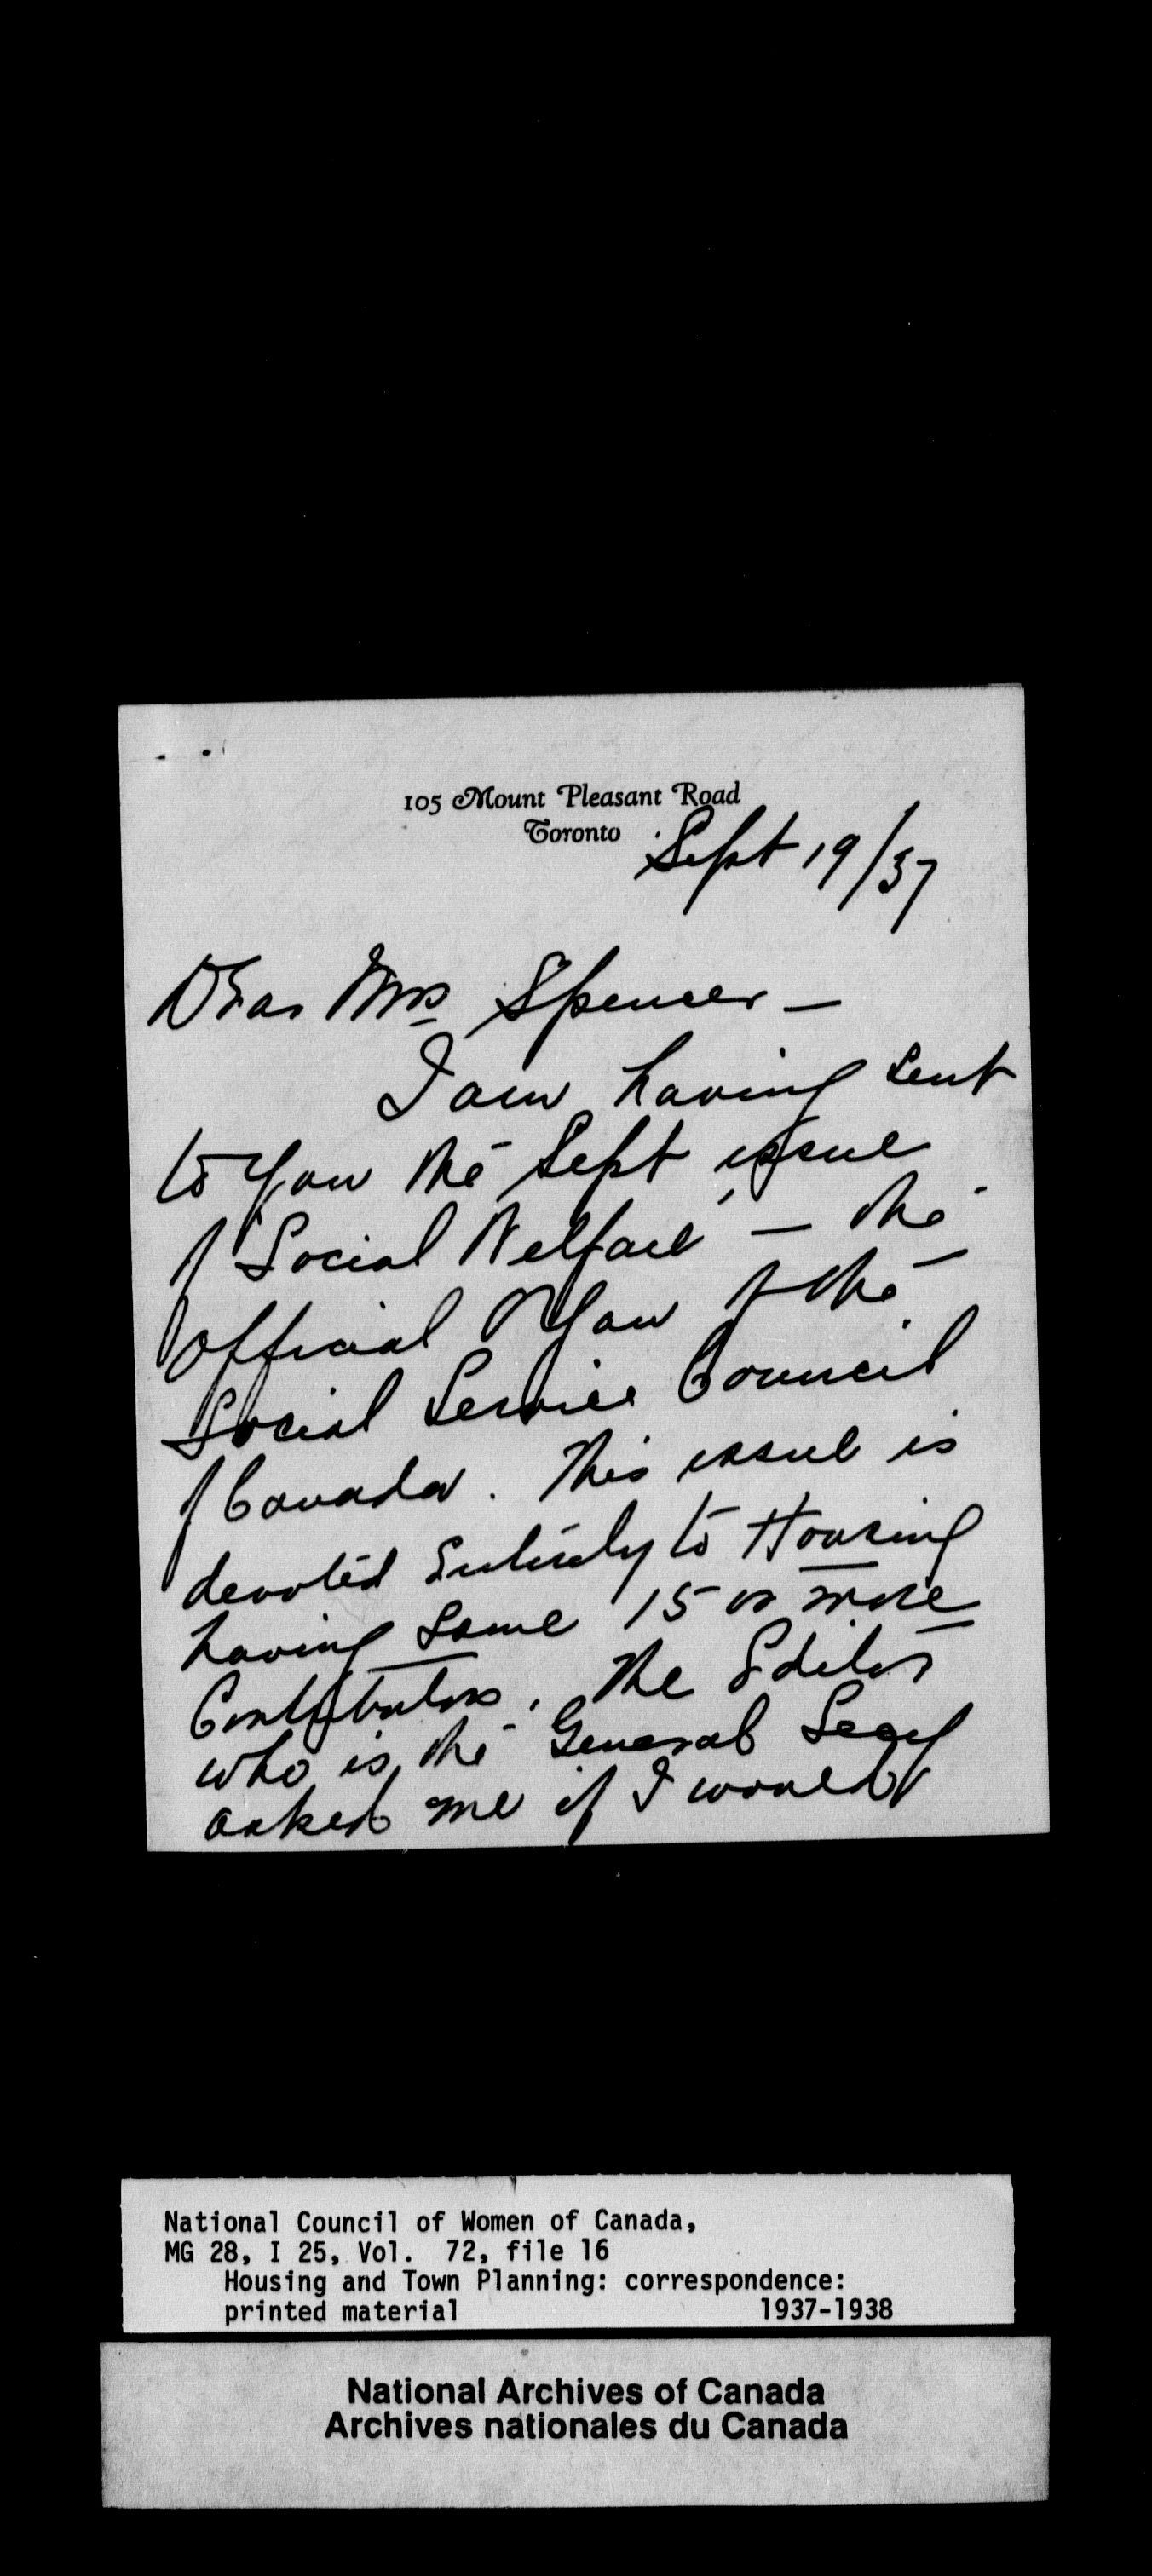 105 Mount Pleasant Road
Toronto
Sept 19/37
Dear Mrs Spencer —
I am having sent
to you the Sept issue
of "Social Welfare" — the
official Organ of the
Social Service Council
of Canada. This issue is
devoted Entirely to Housing
having some 15 or more
Contributors. The Editor
who is the General Secy
asked me if I would
National Council of Women of Canada,
MG 28, I 25, Vol. 72, file 16
Housing and Town Planning: correspondence:
printed material 1937-1938
National Archives of Canada
Archives nationales du Canada